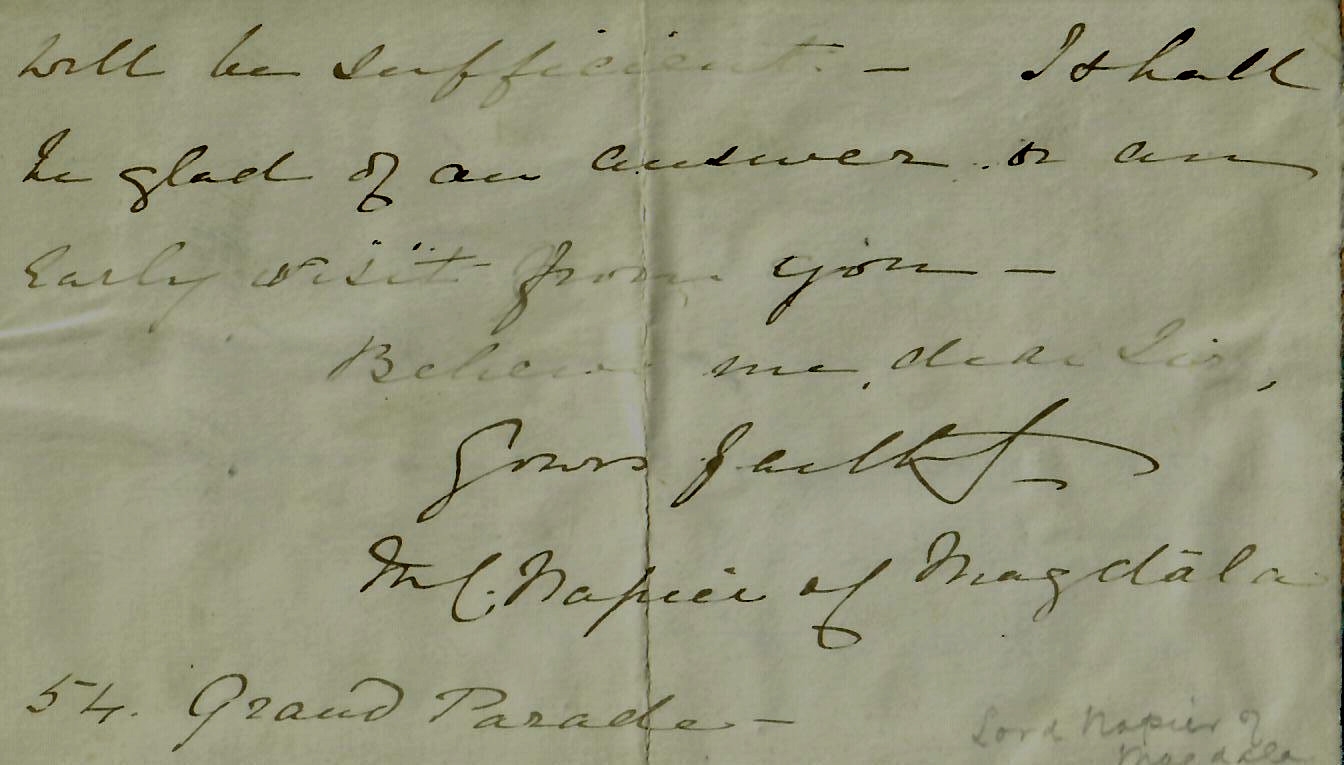 will be sufficient. – I shall
be glad of an answer or an
Early visit from you –
Believe me, dear Sir,
Yours faithf
Napier of Magdāla
54. Grand Parade –
Lord Napier of
Magdala